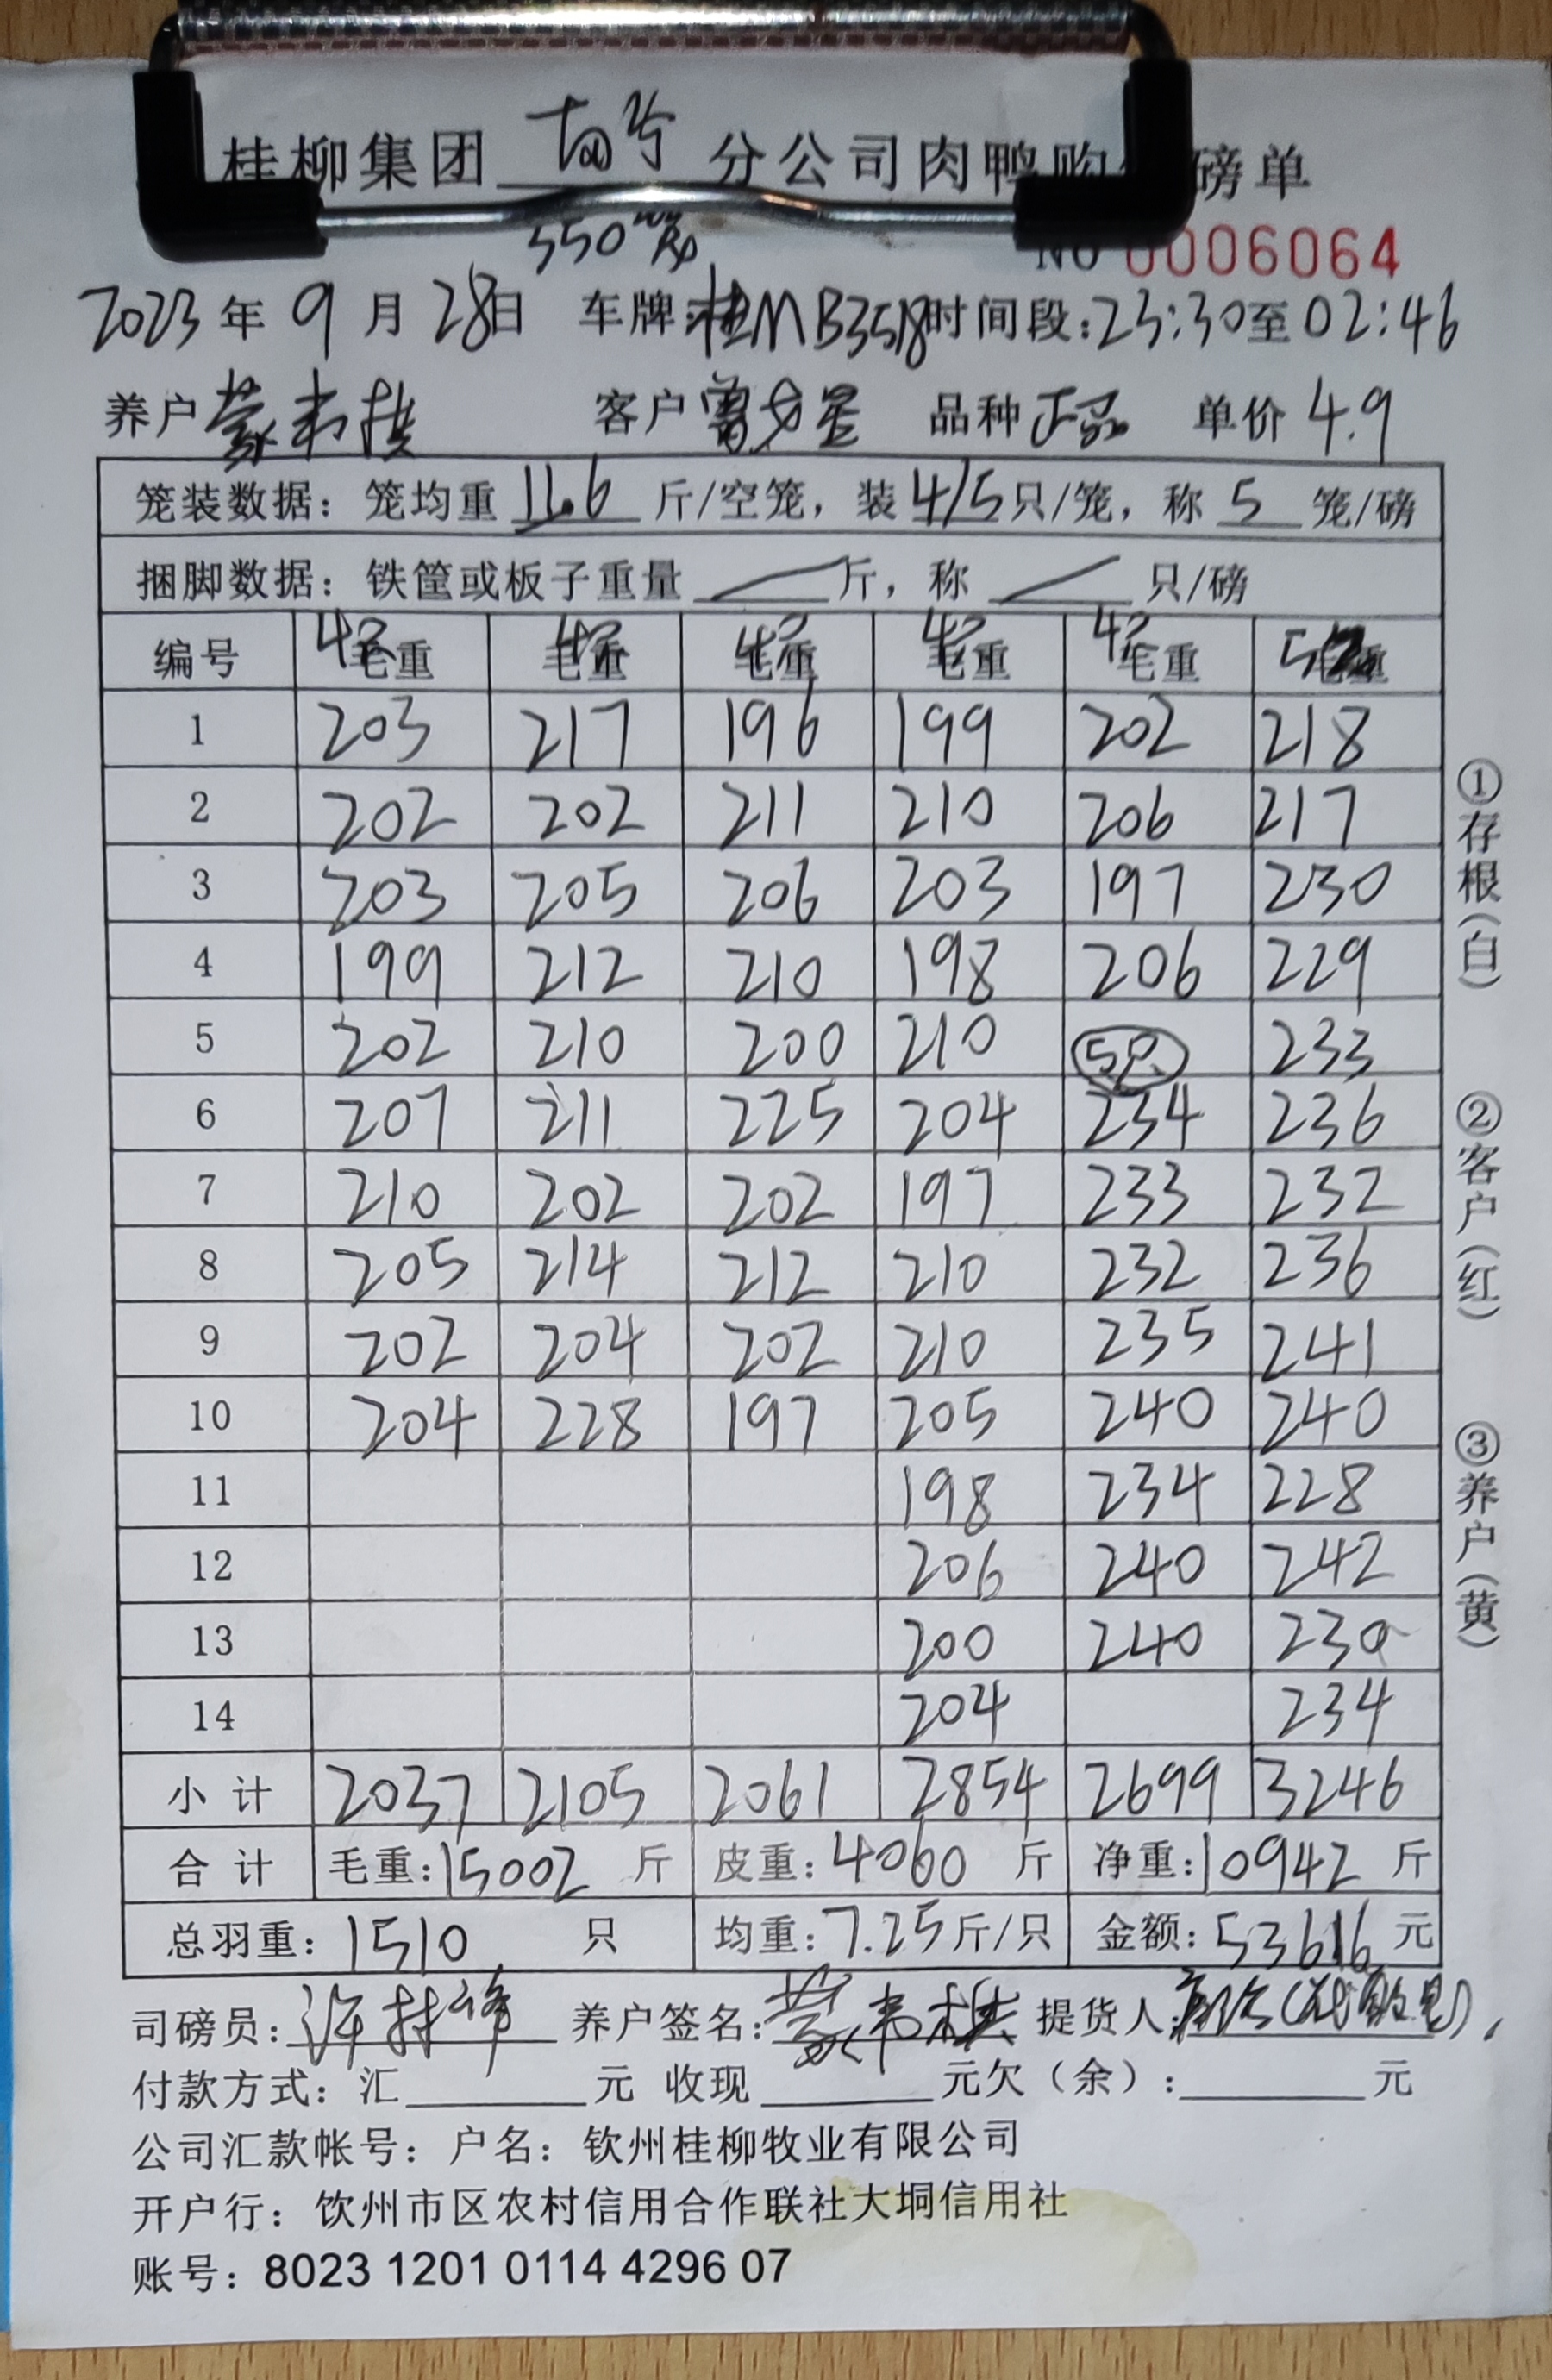 桂柳集团 分公司肉鸭购 磅单
550
No 0006064
2023年9月28日 车牌:桂MB3518 时间段:23:30至02:46
养户 客户 品种 正品 单价 4.9
笼装数据：笼均重 11.6 斤/空笼，装 4/5 只/笼，称 5 笼/磅
捆脚数据：铁筐或板子重量 斤，称 只/磅
编号 4只毛重 4只毛重 4只毛重 4只毛重 4只毛重 5只毛重
1 203 217 196 199 202 218
2 202 202 211 210 206 217
3 203 205 206 203 197 230
4 199 212 210 198 206 229
5 202 210 200 210 5只 233
6 207 211 225 204 234 236
7 210 202 202 197 233 232
8 205 214 212 210 232 236
9 202 204 202 210 235 241
10 204 228 197 205 240 240
11 198 234 228
12 206 240 242
13 200 240 230
14 204 234
小计 2037 2105 2061 2854 2699 3246
合计 毛重:15002 斤 皮重:4060 斤 净重:10942 斤
总羽重：1510 只 均重:7.25斤/只 金额:53616 元
司磅员: 养户签名: 提货人:
付款方式：汇 元 收现 元欠（余）: 元
公司汇款帐号：户名：钦州桂柳牧业有限公司
开户行：饮州市区农村信用合作联社大垌信用社
账号：8023 1201 0114 4296 07
①存根(白)
②客户(红)
③养户(黄)